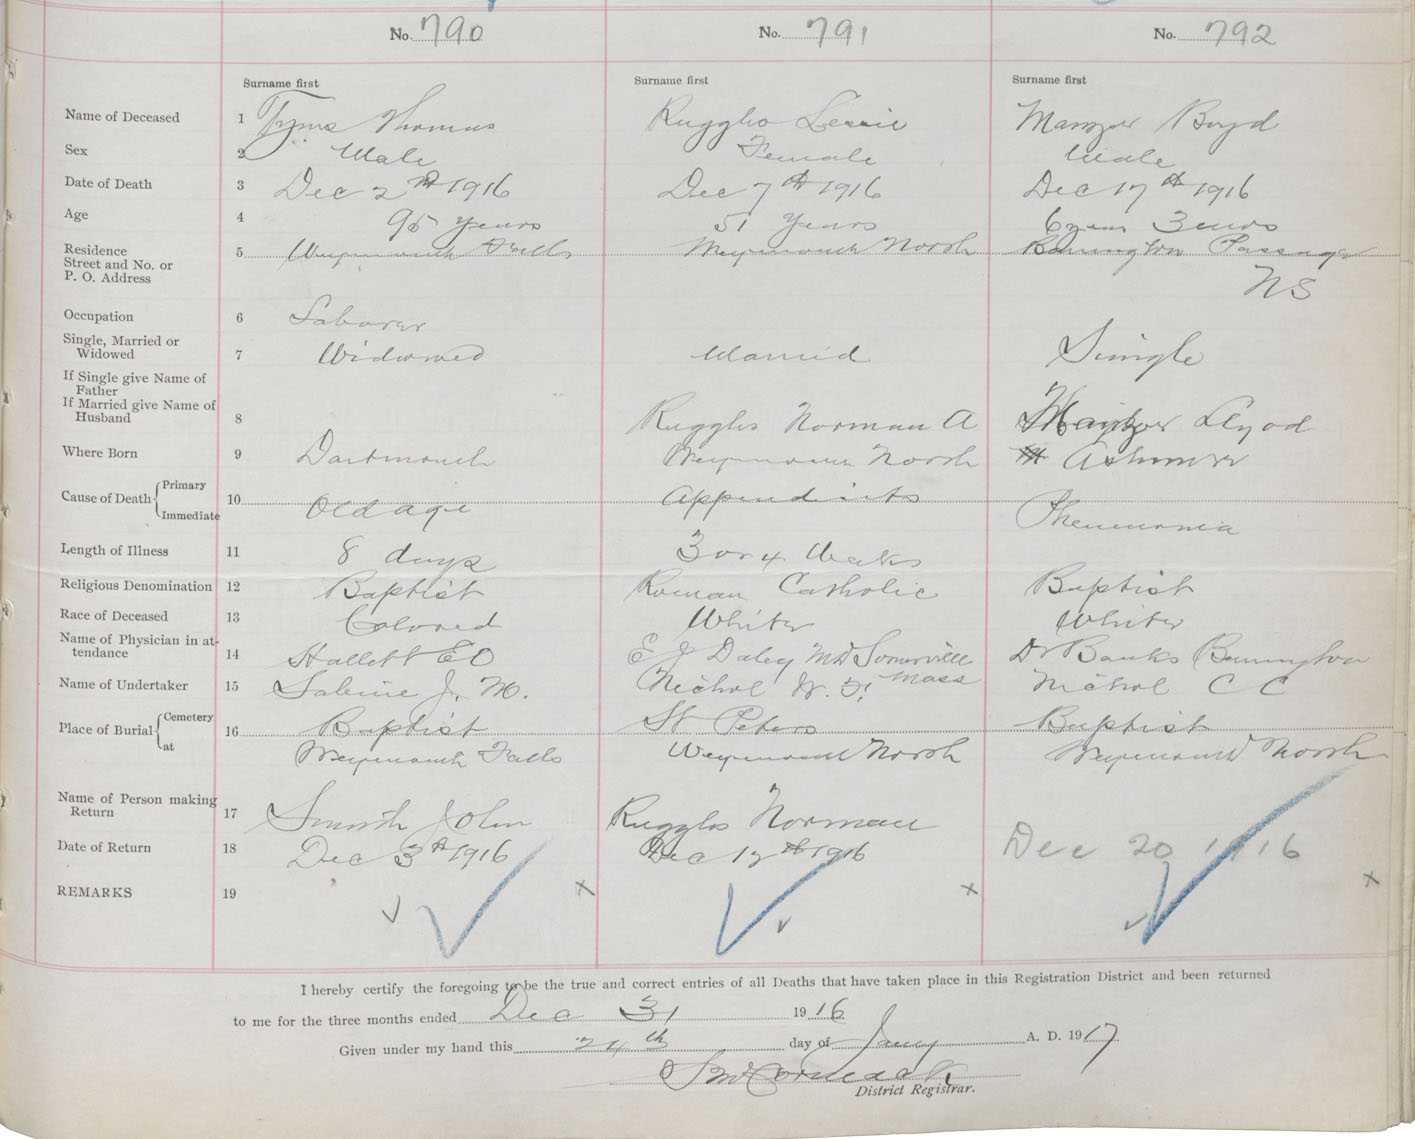 No. 790 No. 791 No. 792
Surname first Surname first Surname first
Name of Deceased 1 Tyms Thomas Ruggles Lessie Manzor Boyd
Sex 2 Male Female Male
Date of Death 3 Dec 2nd 1916 Dec 7th 1916 Dec 17th 1916
Age 4 95 years 51 Years 6 years 3
Residence Street and No. or P. O. Address 5 Weymouth Falls Weymouth North Barrington Passage
NS
Occupation 6 Laborer
Single, Married or Widowed 7 Widowed Married Single
If Single give Name of Father
If Married give Name of Husband 8 Ruggles Norman A Manzor Lloyd
Where Born 9 Dartmouth Weymouth North
Cause of Death { Primary 10 Appendicits
Immediate Old age Pheumonia
Length of Illness 11 8 days 3 or 4 Weaks
Religious Denomination 12 Baptist Roman Catholic Baptist
Race of Deceased 13 Colored White White
Name of Physician in attendance 14 Hallett E O E J Daley MD Somerville Mass Dr Banks Barrington
Name of Undertaker 15 Sabine J. M. Nichol W. F. Nichol C C
Place of Burial { Cemetery 16 Baptist St Peters Baptist
at Weymouth Falls Weymouth North Weymouth North
Name of Person making Return 17 Smith John Ruggles Norman
Date of Return 18 Dec 3rd 1916 Dec 12th 1916 Dec 20 1916
REMARKS 19
I hereby certify the foregoing to be the true and correct entries of all Deaths that have taken place in this Registration District and been returned
to me for the three months ended Dec 31 1916
Given under my hand this 24th day of Jany A. D. 1917
McCormack
District Registrar.